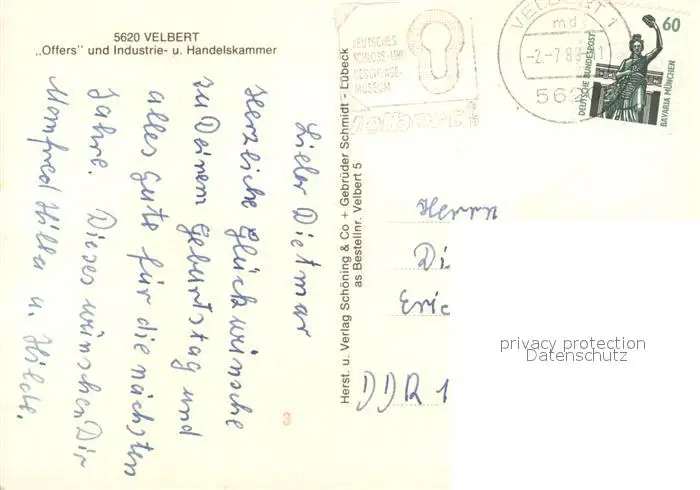 5620 VELBERT
„Offers" und Industrie- u. Handelskammer
Lieber Dietmar
Herzliche Glückwünsche
zu Deinem Geburtstag und
alles Gute für die nächsten
Jahre. Dieses wünschen Dir
Manfred Hilla u. Hilde.
3
Herst. u. Verlag Schöning & Co + Gebrüder Schmidt - Lübeck
as Bestellnr. Velbert 5
DEUTSCHES
SCHLOSS- UND
BESCHLÄGE-
MUSEUM
velbert
VELBERT 1
md
-2.-7.88
562
60
DEUTSCHE BUNDESPOST
BAVARIA MÜNCHEN
Herrn
Di
Eric
DDR 1
privacy protection
Datenschutz